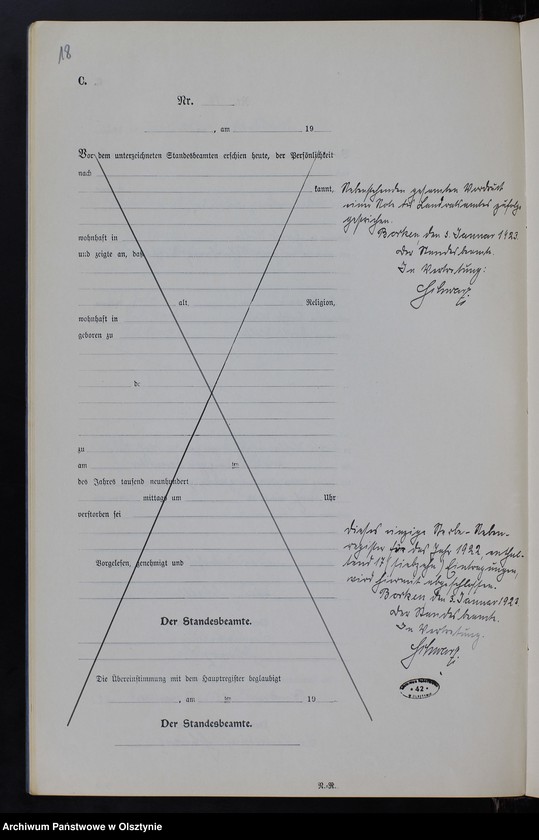 18
C.
Nr.
, am 19
Vor dem unterzeichneten Standesbeamten erschien heute, der Persönlichkeit
nach
kannt,
wohnhaft in
und zeigte an, daß
alt, Religion,
wohnhaft in
geboren zu
de
zu
am ten
des Jahres tausend neunhundert
mittags um Uhr
verstorben sei
Vorgelesen, genehmigt und
Der Standesbeamte.
Die Übereinstimmung mit dem Hauptregister beglaubigt
, am ten 19
Der Standesbeamte.
N.-R.
Nebenstehenden gesamten Vordruck
einer Note des Landratsamtes zufolge
gestrichen.
Borken den 3. Januar 1923.
Der Standesbeamte.
In Vertretung:
Dieses einzige Sterbe-Neben-
register für das Jahr 1922, enthal-
tend 17 (siebzehn) Eintragungen,
wird hiermit abgeschlossen.
Borken den 3. Januar 1923
Der Standesbeamte.
In Vertretung.
42
Archiwum Państwowe w Olsztynie